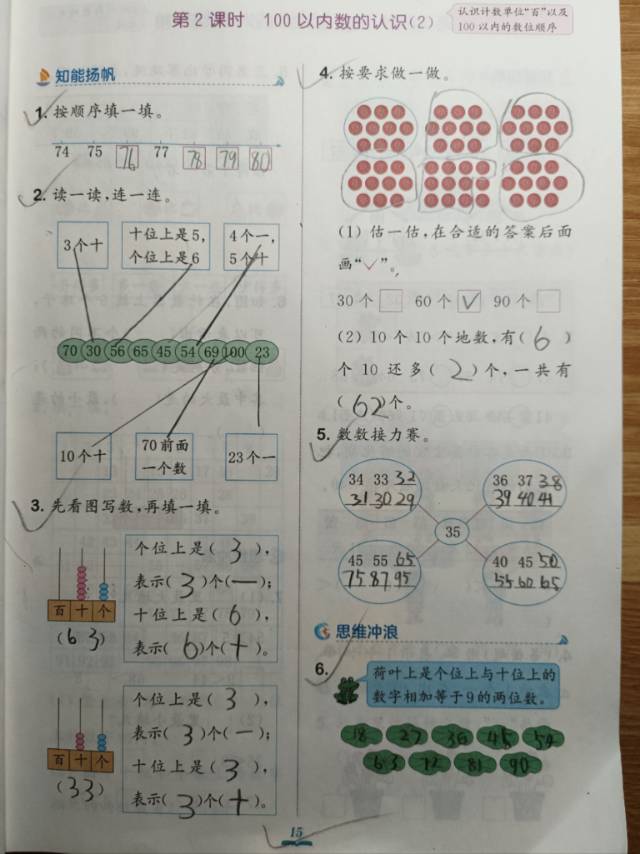 第2课时 100以内数的认识(2)
认识计数单位“百”以及
100以内的数位顺序
知能扬帆
1. 按顺序填一填。
74 75 76 77 78 79 80
2. 读一读,连一连。
3个十
十位上是5,
个位上是6
4个一,
5个十
70 30 56 65 45 54 69 100 23
10个十
70前面
一个数
23个一
3. 先看图写数,再填一填。
百 十 个
(63)
个位上是(3),
表示(3)个(一);
十位上是(6),
表示(6)个(十)。
百 十 个
(33)
个位上是(3),
表示(3)个(一);
十位上是(3),
表示(3)个(十)。
4. 按要求做一做。
(1) 估一估,在合适的答案后面
画“✓”。
30个 60个 ✓ 90个
(2) 10个10个地数,有(6)
个10还多(2)个,一共有
(62)个。
5. 数数接力赛。
34 33 32
31 30 29
36 37 38
39 40 41
35
45 55 65
75 87 95
40 45 50
55 60 65
思维冲浪
6.
荷叶上是个位上与十位上的
数字相加等于9的两位数。
18 27 36 45 54
63 72 81 90
15